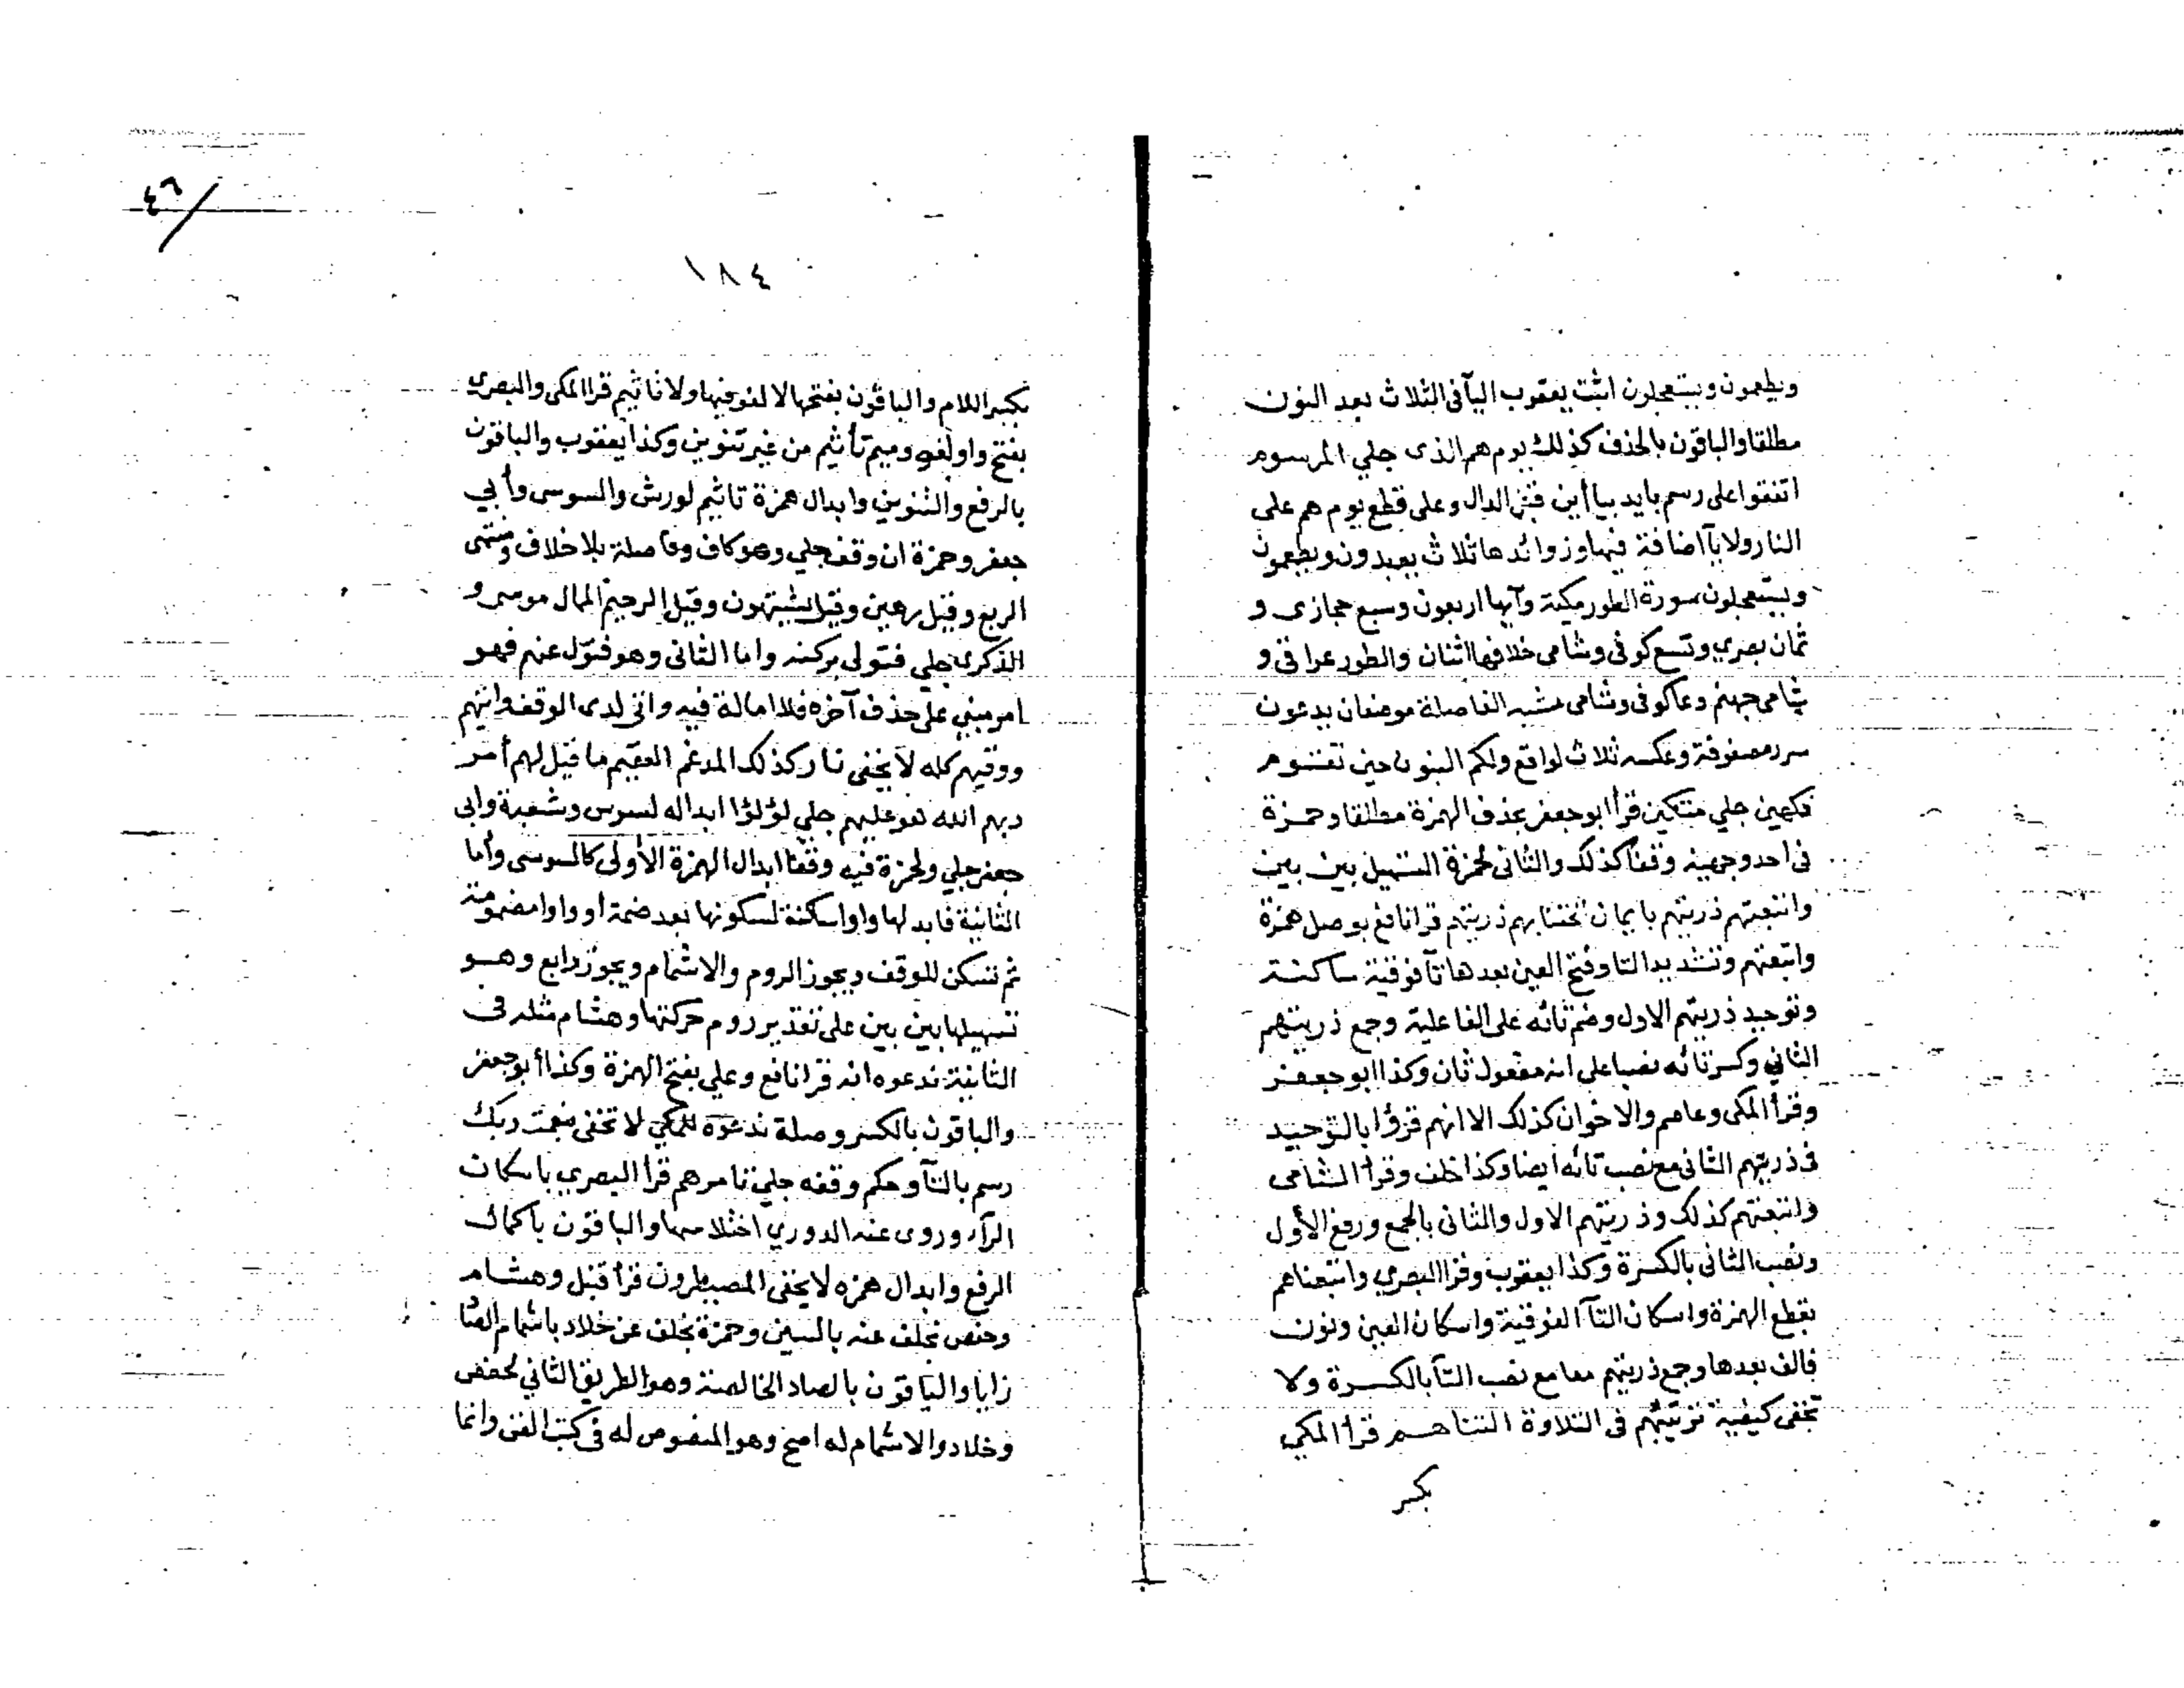 ويطعمون ويستعجلون اثبت يعقوب اليآ فى الثلاث بعد النون
مطلقا والباقون بالحذف كذلك يوم هم الذى جلي المرسوم
اتفقوا على رسم بايد بيا أين قبل الدال وعلى قطع يوم هم على
النار ولا يآ اضافة فيها وزوائدها ثلاث يعبدون ويطعمون
ويستعجلون سورة الطور مكية وآيها اربعون وسبع حجازى و
ثمان بصري وتسع كوفى وشامى خلافها اثنان والطور عراقى و
شامى جهنم دعا كوفى وشامى مشبه الفاصلة موضعان يدعون
سرر مصفوفة وعكسه ثلاث لواقع ولكم البنون حين تقوم
فكهين جلي متكين قرأ ابو جعفر بحذف الهمزة مطلقا وحمزة
فى احد وجهيه وقفا كذلك والثانى لحمزة التسهيل بين بين
واتبعتهم ذريتهم بايمان ألحقنا بهم ذريتهم قرا نافع بوصل همزة
واتبعتهم وتشديد التا وفتح العين بعدها تآ فوقية ساكنة
وتوحيد ذريتهم الاول وضم تائه على الفاعلية وجمع ذريتهم
الثاني وكسر تائه نصبا على انه مفعول ثان وكذا ابو جعفر
وقرأ المكى وعاصم والاخوان كذلك الا انهم قرؤا بالتوحيد
فى ذريتهم الثانى مع نصب تائه ايضا وكذا خلف وقرأ الشامى
واتبعتهم كذلك وذريتهم الاول والثانى بالجمع ورفع الأول
ونصب الثانى بالكسرة وكذا يعقوب وقرا البصري واتبعناهم
بقطع الهمزة واسكان التآ الفوقية واسكان العين ونون
فالف بعدها وجمع ذريتهم معا مع نصب التآ بالكسرة ولا
تخفى كيفية ترتيبهم فى التلاوة التناهم قرأ المكي
بكسر
٤٦
١٨٤
بكسر اللام والباقون بفتحها لا لغو فيها ولا تاثيم قرا المكى والبصرى
بفتح واو لغو وميم تأثيم من غير تنوين وكذا يعقوب والباقون
بالرفع والتنوين وابدال همزة تاثيم لورش والسوسى وأبي
جعفر وحمزة ان وقف جلي وهو كاف وفاصلة بلا خلاف ومنتهى
الربع وقيل رهين وقيل يشتهون وقيل الرحيم الممال موسى و
الذكرى جلي فتولى بركنه واما الثانى وهو فتول عنهم فهو
امر مبني على حذف آخره فلا امالة فيه واتى لدى الوقف واتيهم
ووقيهم كله لا يخفى نار كذلك المدغم العقيم ما قيل لهم أمر
ربهم الله هو عليهم جلي لؤلؤا ابداله لسوس وشعبة وابى
جعفر جلي ولحمزة فيه وقفا ابدال الهمزة الأولى كالسوسى وأما
الثانية فابدلها واوا ساكنة لسكونها بعد ضمة او واوا مضمومة
ثم تسكن للوقف ويجوز الروم والاشمام ويجوز رابع وهو
تسهيلها بين بين على تقدير روم حركتها وهشام مثله فى
الثانية ندعوه انه قرا نافع وعلي بفتح الهمزة وكذا أبو جعفر
والباقون بالكسر وصلة ندعوه للمكي لا تخفى بنعمت ربك
رسم بالتآ وحكم وقفه جلي تامرهم قرا البصري باسكان
الرآء وروى عنه الدوري اختلاسها والباقون باكمال
الرفع وابدال همزه لا يخفى المصيطرون قرأ قنبل وهشام
وحفص بخلف عنه بالسين وحمزة بخلف عن خلاد باشمام الصاد
زايا والباقون بالصاد الخالصة وهو الطريق الثاني لحفص
وخلاد والاشمام له اصح وهو المنصوص له فى كتب الفن وانما